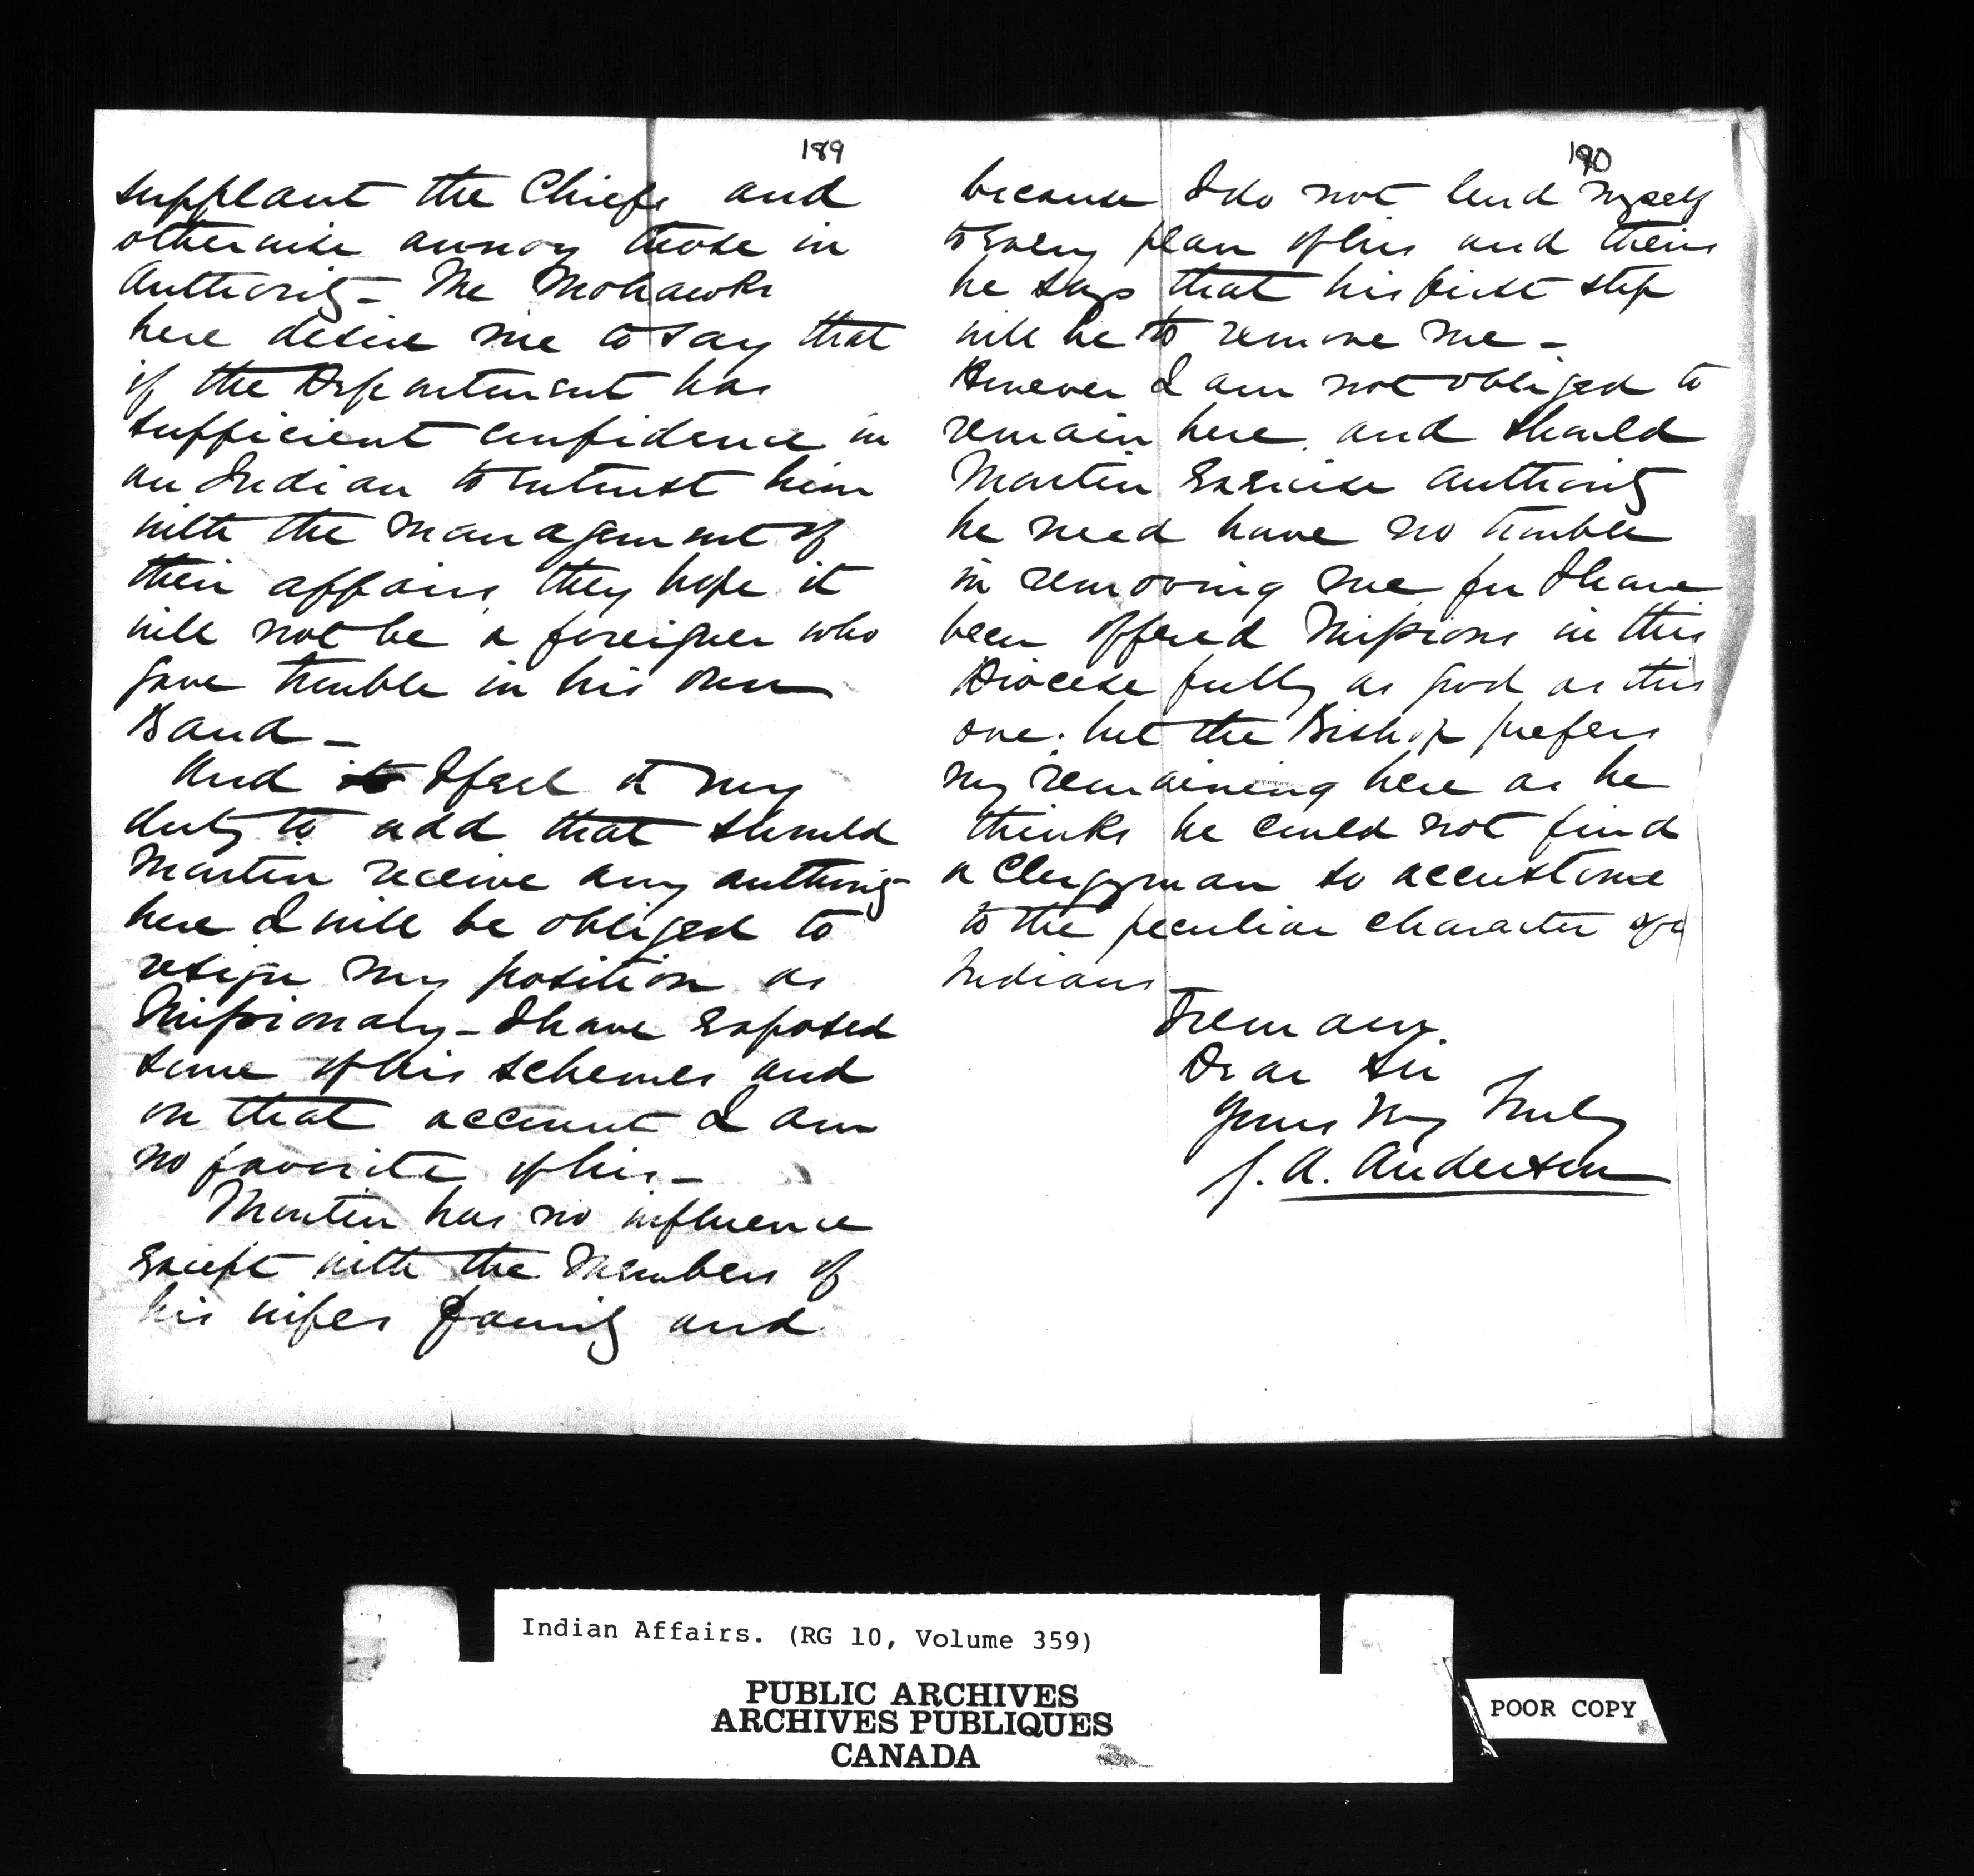 189
supplant the Chiefs and
otherwise annoy those in
authority - The Mohawks
here desire me to say that
if the Department has
sufficient confidence in
an Indian to intrust him
with the management of
their affairs, they hope it
will not be a foreigner who
gave trouble in his own
Band -
And I feel it my
duty to add that should
Martin receive any authority
here I will be obliged to
resign my position as
Missionary - I have exposed
some of his schemes and
on that account I am
no favorite of his -
Martin has no influence
except with the members of
his wifes family and
190
because I do not lend myself
to every plan of his and theirs
he says that his first step
will be to remove me -
However I am not obliged to
remain here and should
Martin exercise authority
he need have no trouble
in removing me for I have
been offered Missions in this
Diocese fully as good as this
one. but the Bishop prefers
my remaining here as he
thinks he could not find
a Clergyman so accustome
to the peculiar character of
Indians
I remain
Dear Sir
Yours Very Truly
J. A. Anderson
Indian Affairs. (RG 10, Volume 359)
PUBLIC ARCHIVES
ARCHIVES PUBLIQUES
CANADA
POOR COPY